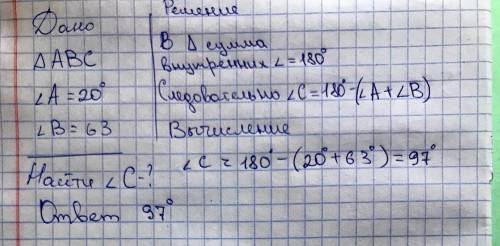 Дано
Δ ABC
∠A = 20°
∠B = 63
Найти ∠C-?
Ответ 97°
Решение
В Δ сумма
внутренних ∠ = 180°
Следовательно ∠C = 180° - (∠A + ∠B)
Вычисление
∠C = 180° - (20° + 63°) = 97°